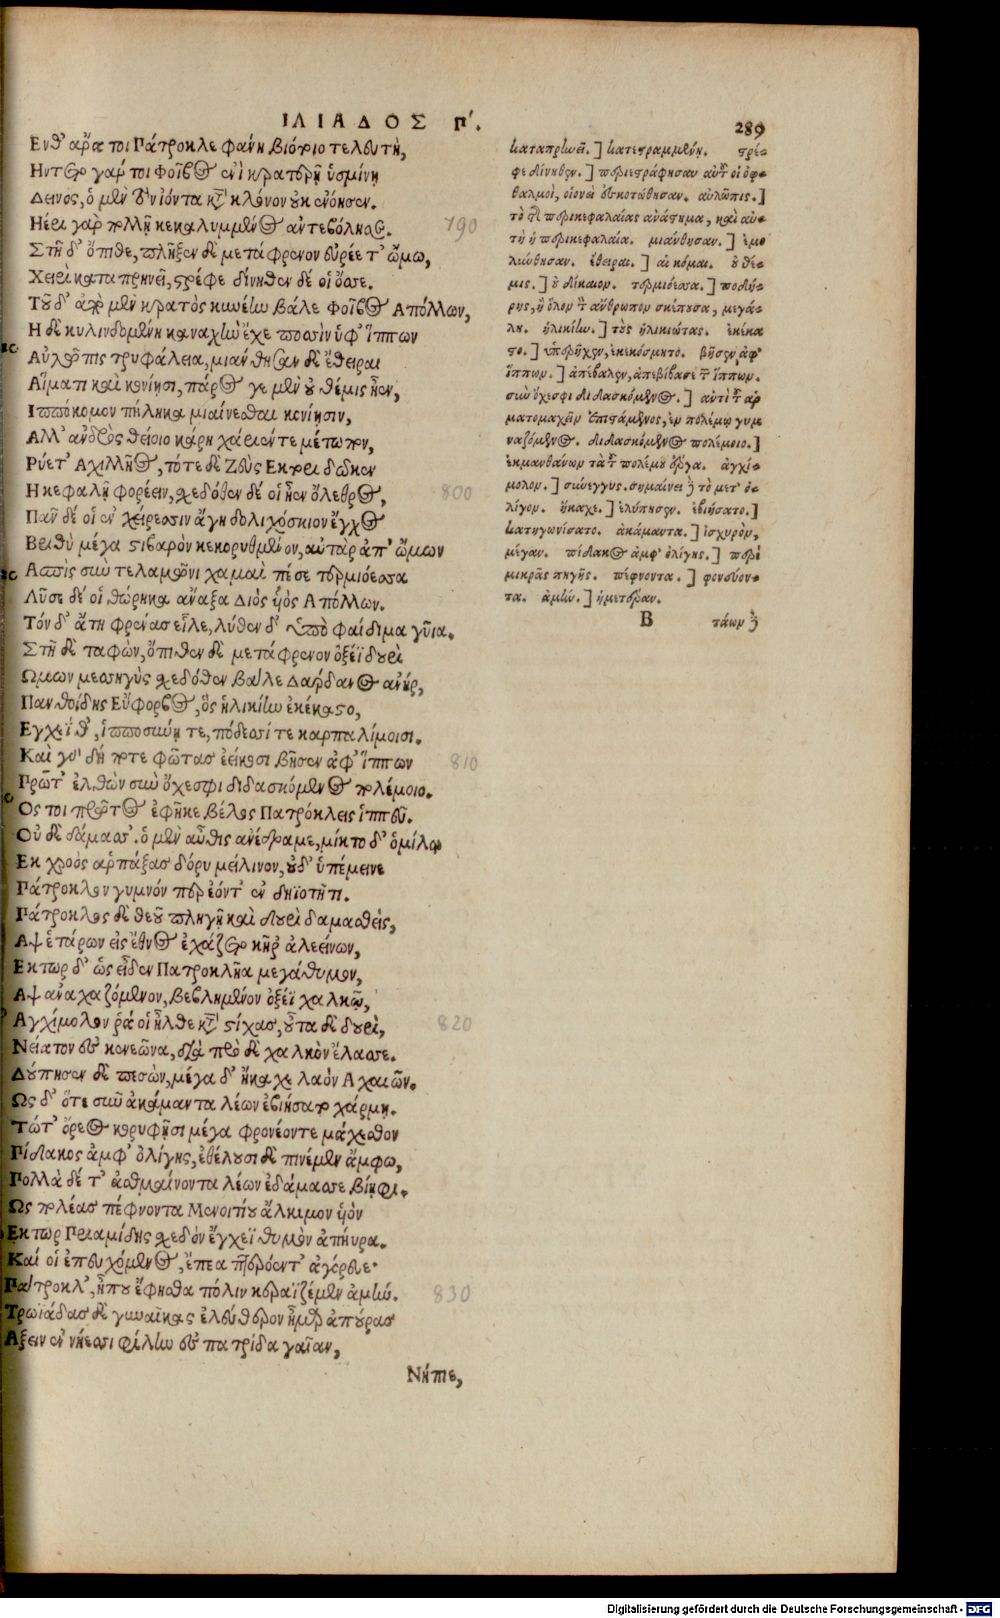 ΙΛΙΑΔΟΣ Π΄.
289
Ενθ' ἄρα τοι Πάτροκλε φάνη βιότοιο τελευτὴ,
Ηντετο γάρ τοι Φοῖβος ἐνὶ κρατερῇ ὑσμίνῃ
Δεινὸς, ὁ μὲν τὸν ἰόντα κατὰ κλόνον οὐκ ἐνόησεν.
Ηέρι γὰρ πολλῇ κεκαλυμμένος ἀντεβόλησε.
790
Στῆ δ' ὄπιθε, πλῆξεν δὲ μετάφρενον εὐρέε τ' ὤμω,
Χειρὶ καταπρηνεῖ, στρέφε δίνηθεν δέ οἱ ὄσσε.
Τοῦ δ' ἀπὸ μὲν κρατὸς κυνέην βάλε Φοῖβος Απόλλων,
Η δὲ κυλινδομένη καναχὴν ἔχε ποσσὶν ὑφ' ἵππων
Αὐλῶπις τρυφάλεια, μιάνθησαν δὲ ἔθειραι
Αἵματι καὶ κονίῃσι, πάρος γε μὲν οὐ θέμις ἦεν,
Ιππόκομον πήληκα μιαίνεσθαι κονίῃσιν,
Αλλ' ἀνδρὸς θείοιο κάρη χάριέν τε μέτωπον,
Ρύετ' Αχιλλῆος, τότε δὲ Ζεὺς Εκτορι δῶκεν
Η κεφαλῇ φορέειν, σχεδόθεν δέ οἱ ἦεν ὄλεθρος,
800
Πᾶν δέ οἱ ἐν χείρεσσιν ἄγη δολιχόσκιον ἔγχος
Βριθὺ μέγα στιβαρὸν κεκορυθμένον, αὐτὰρ ἀπ' ὤμων
Ασπὶς σὺν τελαμῶνι χαμαὶ πέσε τερμιόεσσα
Λῦσε δέ οἱ θώρηκα ἄναξ Διὸς υἱὸς Απόλλων.
Τόν δ' ἄτη φρένας εἷλε, λύθεν δ' ὑπὸ φαίδιμα γῦια.
Στῆ δὲ ταφὼν, ὄπιθεν δὲ μετάφρενον ὀξέϊ δουρὶ
Ωμων μεσσηγὺς σχεδόθεν βάλε Δάρδανος ἀνήρ,
Πανθοίδης Εὔφορβος, ὃς ἡλικίην ἐκέκαστο,
Εγχεΐ θ', ἱπποσύνῃ τε, πόδεσσί τε καρπαλίμοισι.
Καὶ γὰρ δή ποτε φῶτας ἐείκοσι βῆσεν ἀφ' ἵππων
810
Πρῶτ' ἐλθὼν σὺν ὄχεσφι διδασκόμενος πολέμοιο.
Ος τοι πρῶτος ἐφῆκε βέλος Πατρόκλεις ἱππεῦ.
Οὐ δὲ δάμασσ'. ὁ μὲν αὖθις ἀνέδραμε, μίκτο δ' ὁμίλῳ
Εκ χροὸς ἁρπάξας δόρυ μείλινον, οὐδ' ὑπέμεινε
Πάτροκλον γυμνόν περ ἐόντ' ἐν δηϊοτῆτι.
Πάτροκλος δὲ θεοῦ πληγῇ καὶ δουρὶ δαμασθεὶς,
Αψ ἑτάρων εἰς ἔθνος ἐχάζετο κῆρ' ἀλεείνων,
Εκτωρ δ' ὡς εἶδεν Πατροκλῆα μεγάθυμον,
Αψ ἀναχαζόμενον, βεβλημένον ὀξέϊ χαλκῷ,
Αγχίμολον ῥά οἱ ἦλθε κατὰ στίχας, οὖτα δὲ δουρὶ,
820
Νείατον ἐς κενεῶνα, διὰ πρὸ δὲ χαλκὸν ἔλασσε.
Δούπησεν δὲ πεσὼν, μέγα δ' ἤκαχε λαὸν Αχαιῶν.
Ως δ' ὅτε σῦν ἀκάμαντα λέων ἐβιήσατο χάρμῃ.
Τώτ' ὄρεος κορυφῇσι μέγα φρονέοντε μάχεσθον
Πίδακος ἀμφ' ὀλίγης, ἐθέλουσι δὲ πινέμεν ἄμφω,
Πολλὰ δέ τ' ἀσθμαίνοντα λέων ἐδάμασσε βίηφι.
Ως πολέας πέφνοντα Μενοιτίου ἄλκιμον υἱὸν
Εκτωρ Πριαμίδης σχεδὸν ἔγχεϊ θυμὸν ἀπηύρα.
Καί οἱ ἐπευχόμενος, ἔπεα πτερόεντ' ἀγόρευε·
Πάτροκλ', ἦπου ἔφησθα πόλιν κεραϊζέμεν ἀμὴν.
830
Τρωϊάδας δὲ γυναῖκας ἐλεύθερον ἦμαρ ἀπούρας
Αξειν ἐν νήεσσι φίλην ἐς πατρίδα γαῖαν,
Νήπιε,
καταπρηνεῖ.] κατεστραμμένῃ. στρέ-
φε δίνηθεν.] περιεστράφησαν αὐτοῦ οἱ ὀφ-
θαλμοὶ, οἱονεὶ ἐσκοτώθησαν. αὐλῶπις.]
τὸ τῆς περικεφαλαίας ἀνάστημα, καὶ αὐ-
τὴ ἡ περικεφαλαία. μιάνθησαν.] ἐμο
λύνθησαν. ἔθειραι.] αἱ κόμαι. οὐ θέ-
μις.] οὐ δίκαιον. τερμιόεσσα.] ποδή-
ρης, ἢ ὅλον τὸν ἄνθρωπον σκέπουσα, μεγά-
λη. ἡλικίην.] τοὺς ἡλικιώτας. ἐκέκα
στο.] ὑπερῆχεν, ἐκεκόσμητο. βῆσεν ἀφ'
ἵππων.] ἀπέβαλεν, ἀπεβίβασε τῶν ἵππων.
σὺν ὄχεσφι διδασκόμενος.] ἀντὶ τοῦ ἁρ
ματομαχεῖν ἐπιστάμενος, ἐν πολέμῳ γυμ
ναζόμενος. διδασκόμενος πολέμοιο.]
ἐκμανθάνων τὰ τοῦ πολέμου ἔργα. ἀγχί-
μολον.] σύνεγγυς. σημαίνει δὲ τὸ μετ' ὀ-
λίγον. ἤκαχε.] ἐλύπησεν. ἐβιήσατο.]
κατηγωνίσατο. ἀκάμαντα.] ἰσχυρὸν,
μέγαν. πίδακος ἀμφ' ὀλίγης.] περὶ
μικρᾶς πηγῆς. πέφνοντα.] φονεύον-
τα. ἀμὴν.] ἡμετέραν.
Β τάων δὲ
Digitalisierung gefördert durch die Deutsche Forschungsgemeinschaft - DFG